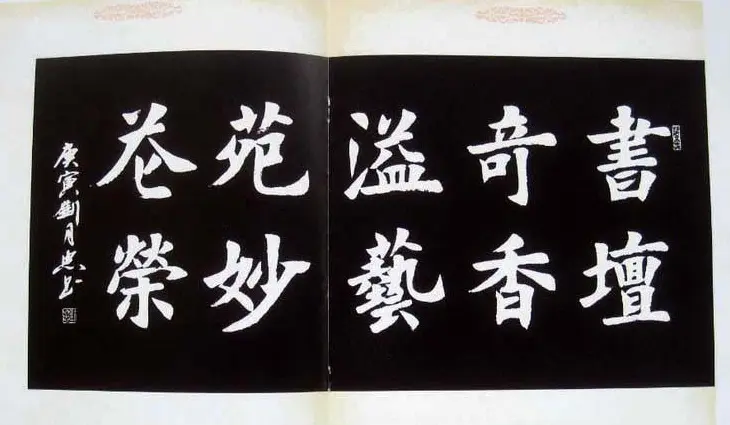 書壇
奇香
溢藝
苑妙
花榮
庚寅劉月忠書